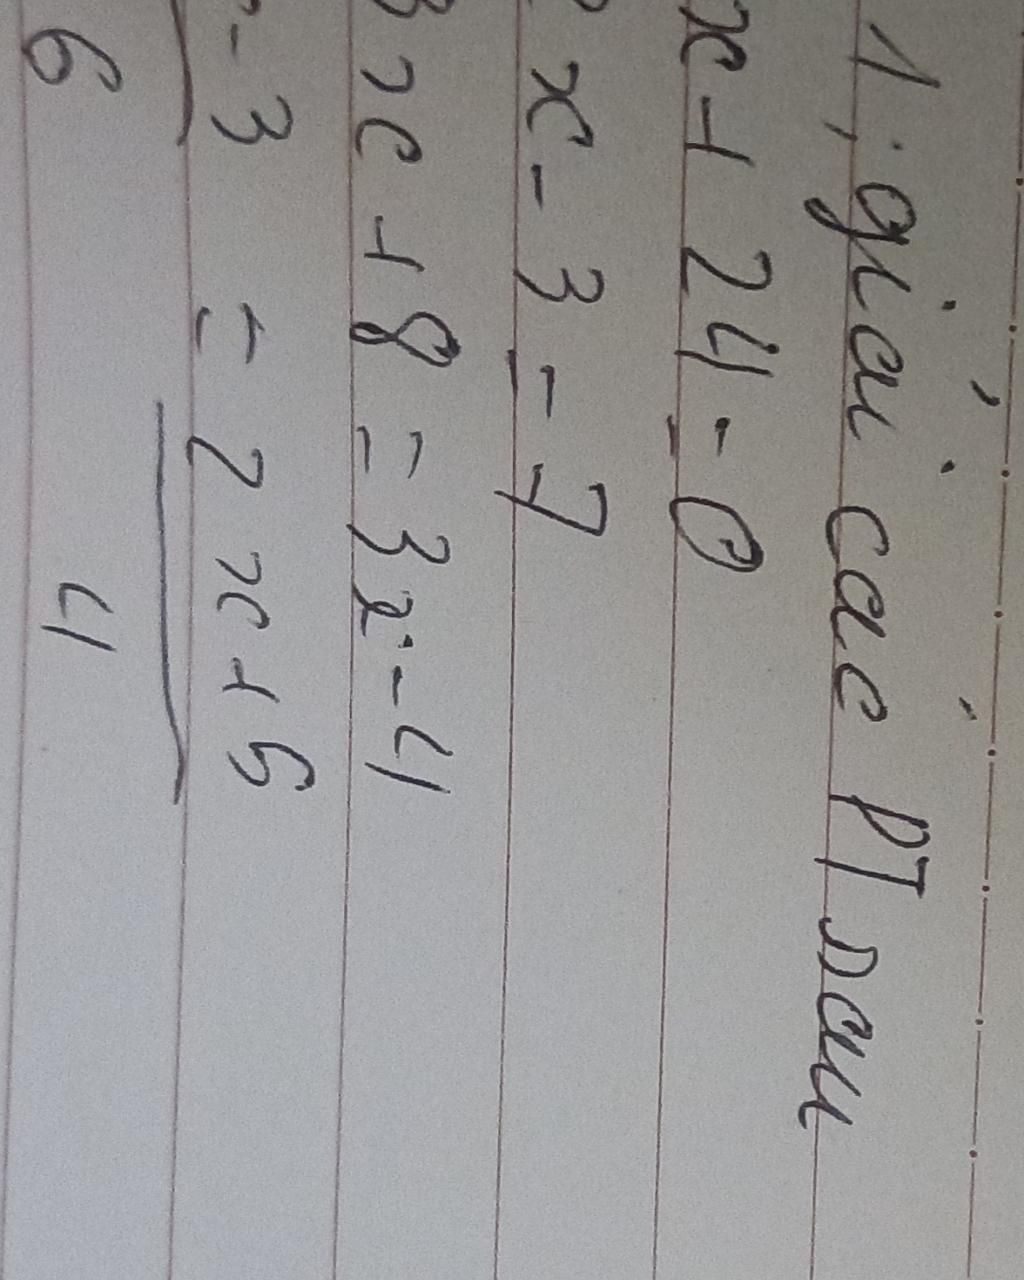 1, giải các PT sau
x + 24 = 0
x - 3 = 7
3x + 8 = 3x - 4
- 3 = 2x + 5
6 4